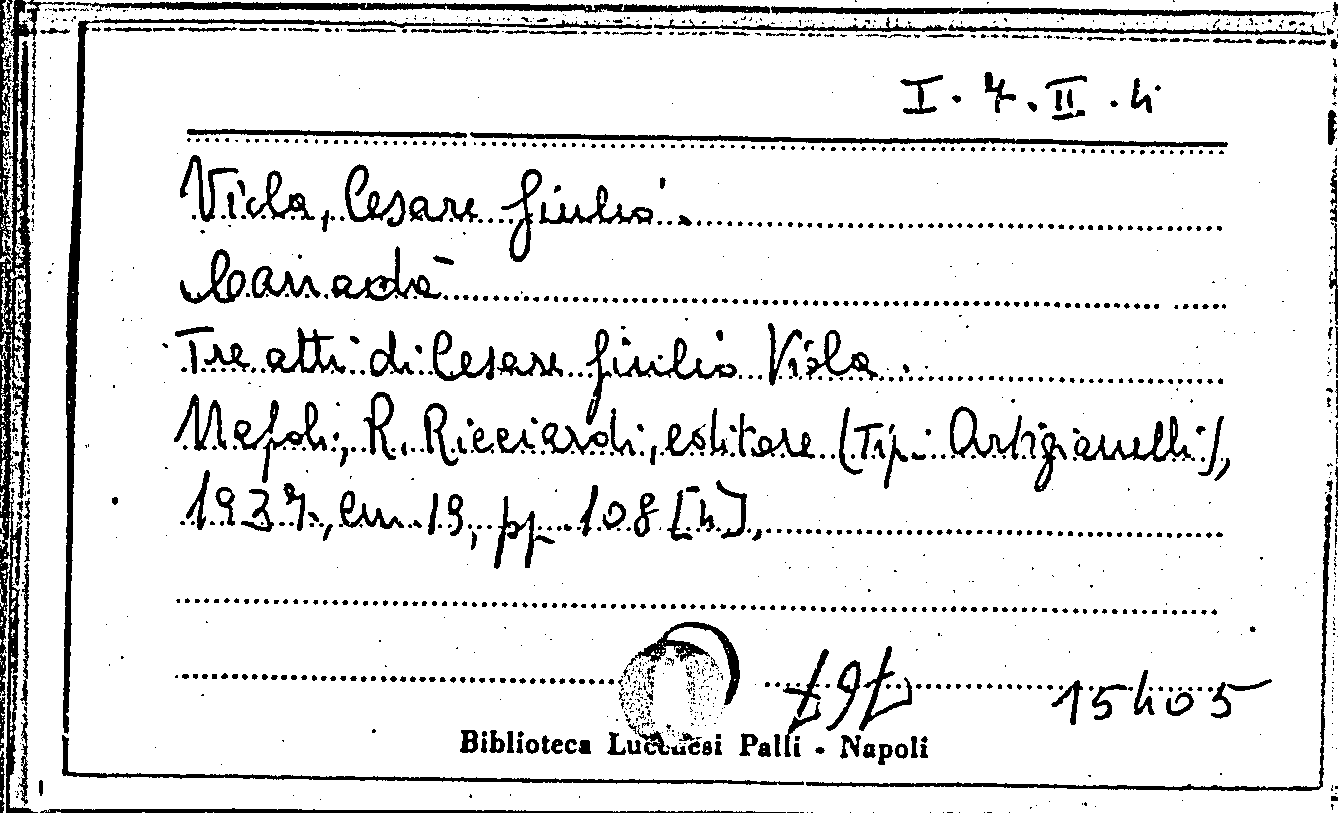 I. 7. II. 4
Viola, Cesare Giulio.
Canadà
Tre atti di Cesare Giulio Viola.
Napoli, R. Ricciardi, editore (Tip. Artigianelli),
1937, cm. 19, pp. 108 [4].
15405
Biblioteca Lucchesi Palli - Napoli